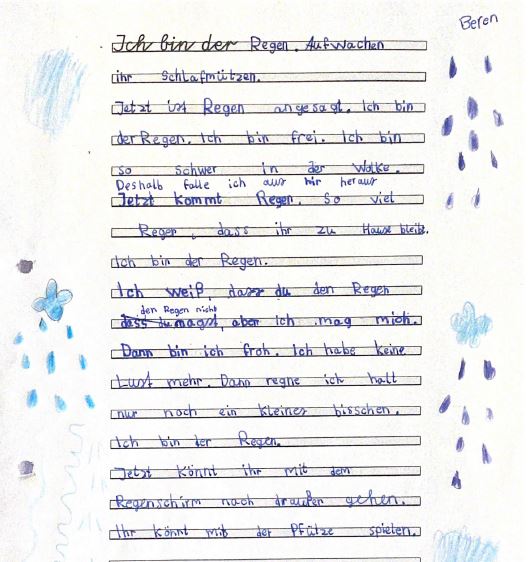 Beren
Ich bin der Regen. Aufwachen
ihr Schlafmützen.
Jetzt ist Regen angesagt. Ich bin
der Regen. Ich bin frei. Ich bin
so schwer in der Wolke.
Deshalb falle ich aus mir heraus
Jetzt kommt Regen. So viel
Regen, dass ihr zu Hause bleibt.
Ich bin der Regen.
Ich weiß, dass du den Regen
den Regen nicht
dass du magst, aber ich mag mich.
Dann bin ich froh. Ich habe keine
Lust mehr. Dann regne ich halt
nur noch ein kleines bisschen.
Ich bin der Regen.
Jetzt könnt ihr mit dem
Regenschirm nach draußen gehen.
Ihr könnt mit der Pfütze spielen.